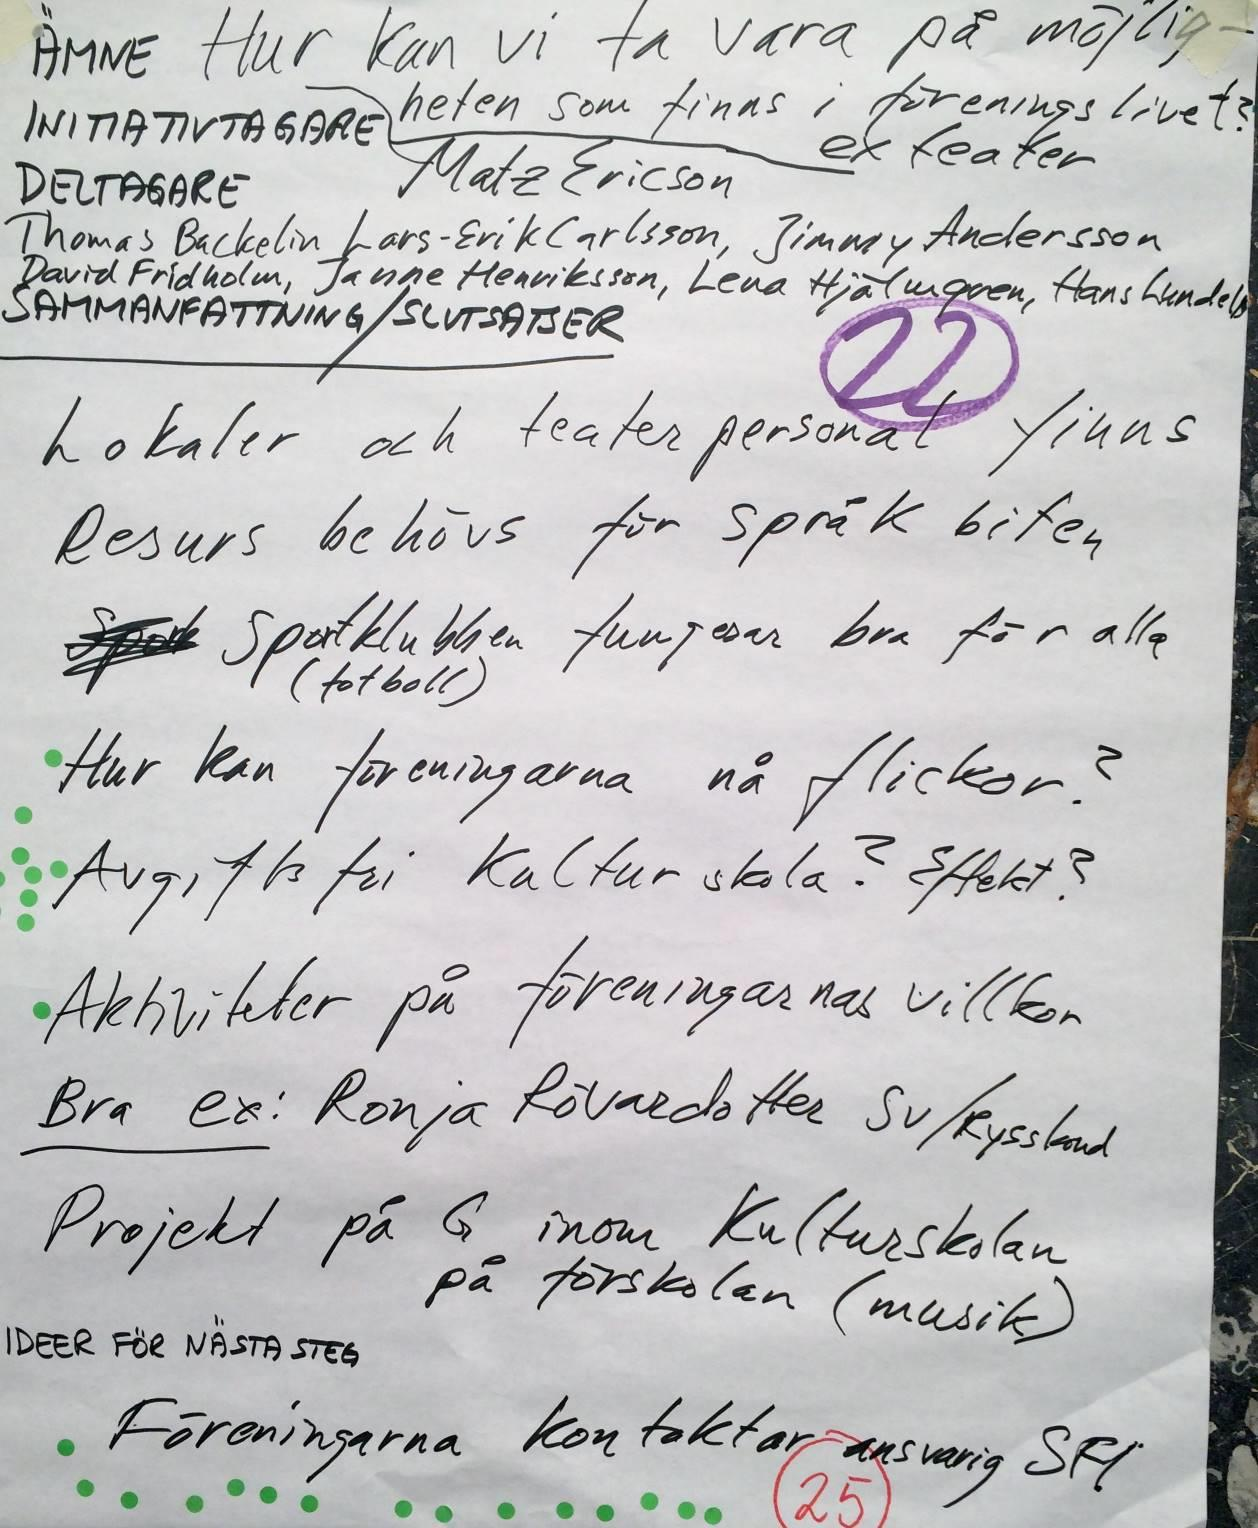 ÄMNE Hur kan vi ta vara på möjlig-
INITIATIVTAGARE heten som finns i föreningslivet?
ex teater
Matz Ericson
DELTAGARE
Thomas Backelin Lars-Erik Carlsson, Jimmy Andersson
David Fridholm, Janne Henriksson, Lena Hjälmqren, Hans Lundell
SAMMANFATTNING/SLUTSATSER
22
Lokaler och teaterpersonal finns
Resurs behövs för språk biten
Sportklubben fungerar bra för alla
(fotboll)
Hur kan föreningarna nå flickor?
Avgifts fri Kultur skola? Effekt?
Aktiviteter på föreningarnas villkor
Bra ex: Ronja Rövardotter Sv/Rysskond
Projekt på G inom Kulturskolan
på förskolan (musik)
IDEER FÖR NÄSTA STEG
Föreningarna kontaktar ansvarig SFI
25